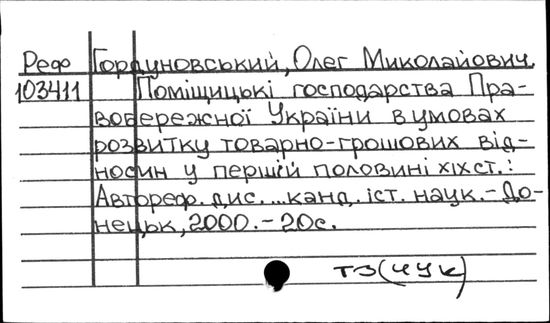 Реф Гордуновський, Олег Миколайович.
103411 Поміщицькі господарства Пра-
вобережної України в умовах
розвитку товарно-грошових від-
носин у першій половині XIX ст.:
Автореф. дис. ...канд. іст. наук. - До-
нецьк, 2000. - 20с.
ТЗ(ЧУК)